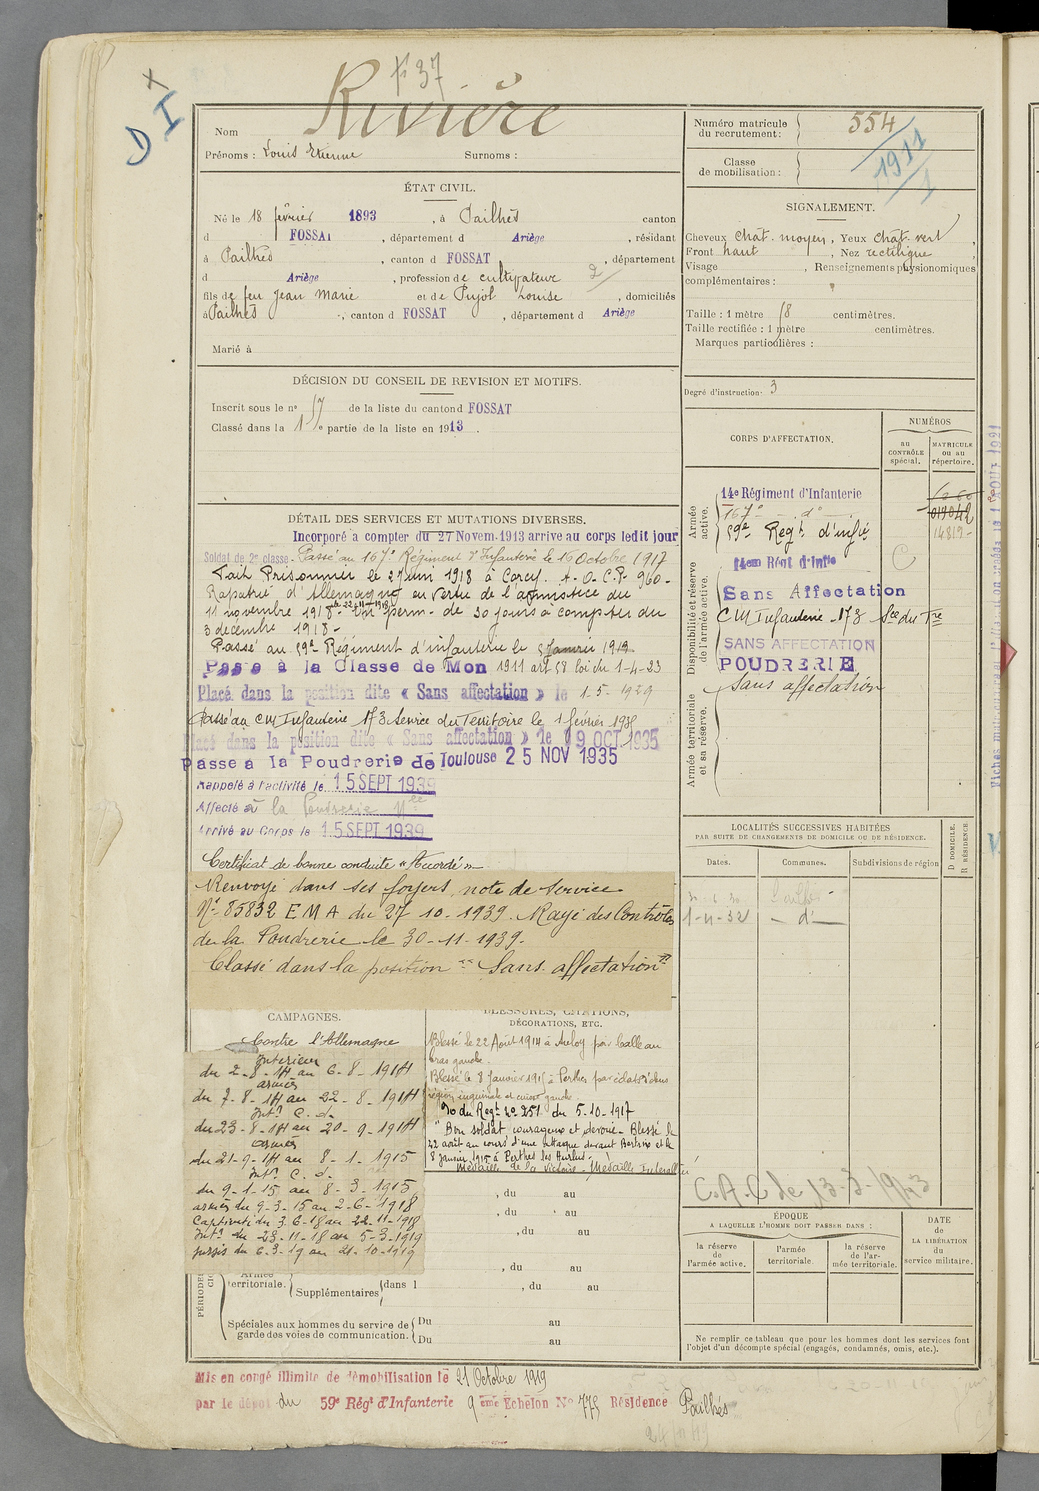 f° 37
Rivière
D I
Nom
Prénoms : Louis Etienne Surnoms :
Numéro matricule du recrutement : 554
1911
Classe de mobilisation :
ÉTAT CIVIL.
Né le 18 février 1893, à Pailhès canton
d FOSSAT, département d Ariège, résidant
à Pailhès, canton d FOSSAT, département
d Ariège, profession de cultivateur 2
fils de feu Jean Marie et de Pujol Louise, domiciliés
à Pailhès, canton d FOSSAT, département d Ariège
Marié à
SIGNALEMENT.
Cheveux chât. moyen, Yeux chât. vert
Front haut, Nez rectiligne
Visage , Renseignements physionomiques
complémentaires :
Taille : 1 mètre 58 centimètres.
Taille rectifiée : 1 mètre centimètres.
Marques particulières :
Degré d'instruction : 3
DÉCISION DU CONSEIL DE REVISION ET MOTIFS.
Inscrit sous le n° 57 de la liste du canton d FOSSAT
Classé dans la 1e partie de la liste en 1913.
DÉTAIL DES SERVICES ET MUTATIONS DIVERSES.
Incorporé a compter du 27 Novem. 1913 arrive au corps ledit jour
Soldat de 2e classe. Passé au 167e Régiment d'Infanterie le 16 Octobre 1917
Fait Prisonnier le 2 Juin 1918 à Corcy. A.O.C.P. 960-
Rapatrié d'Allemagne en vertu de l'armistice du
11 novembre 1918 le 22-11-1918 Un perm. de 30 jours à compter du
3 decembre 1918 -
Passé au 59e Régiment d'infanterie le Janvier 1919
Passe à la Classe de Mon 1911 art 58 loi du 1-4-23
Placé dans la position dite « Sans affectation » le 1-5-1929
Passé au C M Infanterie 173 Service du Territoire le 1 février 19
Placé dans la position dite « Sans affectation » le 9 OCT 1935
Passe a la Poudrerie de Toulouse 25 NOV 1935
Rappelé à l'activité le 15 SEPT 1939
Affecté à la Poudrerie Nle
Arrivé au Corps le 15 SEPT 1939
Certificat de bonne conduite « Accordé »
Renvoyé dans ses foyers, note de service
N° 85832 E M A du 27 10-1939. Rayé des Contrôles
de la Poudrerie le 30-11-1939.
Classé dans la position "Sans affectation"
CORPS D'AFFECTATION.
NUMÉROS
au CONTRÔLE spécial.
MATRICULE ou au répertoire.
Armée active.
14e Régiment d'Infanterie
167e - d° -
59e Regt d'infie
14812-
Disponibilité et réserve de l'armée active.
14em Régt d'Infie
Sans Affectation
C M Infanterie 173 Sce du Tre
SANS AFFECTATION
POUDRERIE
Sans affectation
Armée territoriale et sa réserve.
LOCALITÉS SUCCESSIVES HABITÉES
PAR SUITE DE CHANGEMENTS DE DOMICILE OU DE RÉSIDENCE.
Dates. Communes. Subdivisions de région
D DOMICILE. R RÉSIDENCE.
Pailhès
1-4-32 — d° —
CAMPAGNES.
Contre l'Allemagne
Intérieur
du 2-8-14 au 6-8-1914
armées
du 7-8-14 au 22-8-1914
Intr C. d.
du 23-8-14 au 20-9-1914
armées
du 21-9-14 au 8-1-1915
Intr C. d.
du 9-1-15 au 8-3-1915
armées du 9-3-15 au 2-6-1918
Captivité du 3-6-18 au 22-11-1918
Intr du 23-11-18 au 5-3-1919
sursis du 6-3-19 au 21-10-1919
BLESSURES, CITATIONS,
DÉCORATIONS, ETC.
Blessé le 22 Août 1914 à par balle au
bras gauche.
Blessé le 8 Janvier 1915 à Perthes par éclats d'obus
région inguinale et cuisse gauche
O du Regt n° 251 du 5-10-1917
"Bon soldat courageux et dévoué. Blessé le
22 août au cours d'une attaque devant Bertrix et le
8 Janvier 1915 à Perthes les Hurlus.
Médaille de la Victoire - Médaille Interalliée
, du au
, du au
, du au
, du au
Armée territoriale. Supplémentaires dans l , du au
Spéciales aux hommes du service de garde des voies de communication. Du au
Du au
C.A.C le 13-3-1943
ÉPOQUE
A LAQUELLE L'HOMME DOIT PASSER DANS :
la réserve de l'armée active.
l'armée territoriale.
la réserve de l'armée territoriale.
DATE de LA LIBÉRATION du service militaire.
Ne remplir ce tableau que pour les hommes dont les services font
l'objet d'un décompte spécial (engagés, condamnés, omis, etc.).
Mis en congé illimité de démobilisation le 21 Octobre 1919
par le dépôt du 59e Régt d'Infanterie 9 ème Echelon N° 775 Résidence Pailhès